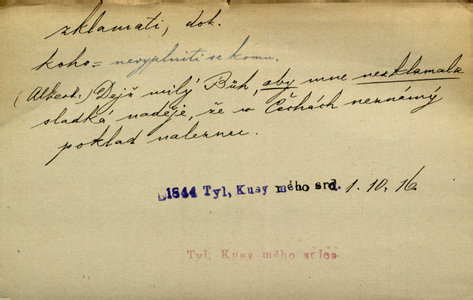 zklamati, dok.
koho = nevyplniti se komu.
(Albert.) Dejž milý Bůh, aby mne nezklamala
sladká naděje, že v Čechách neznámý
poklad naleznu.
1844 Tyl, Kusy mého srd. 1. 10, 16.
Tyl, Kusy mého srdce